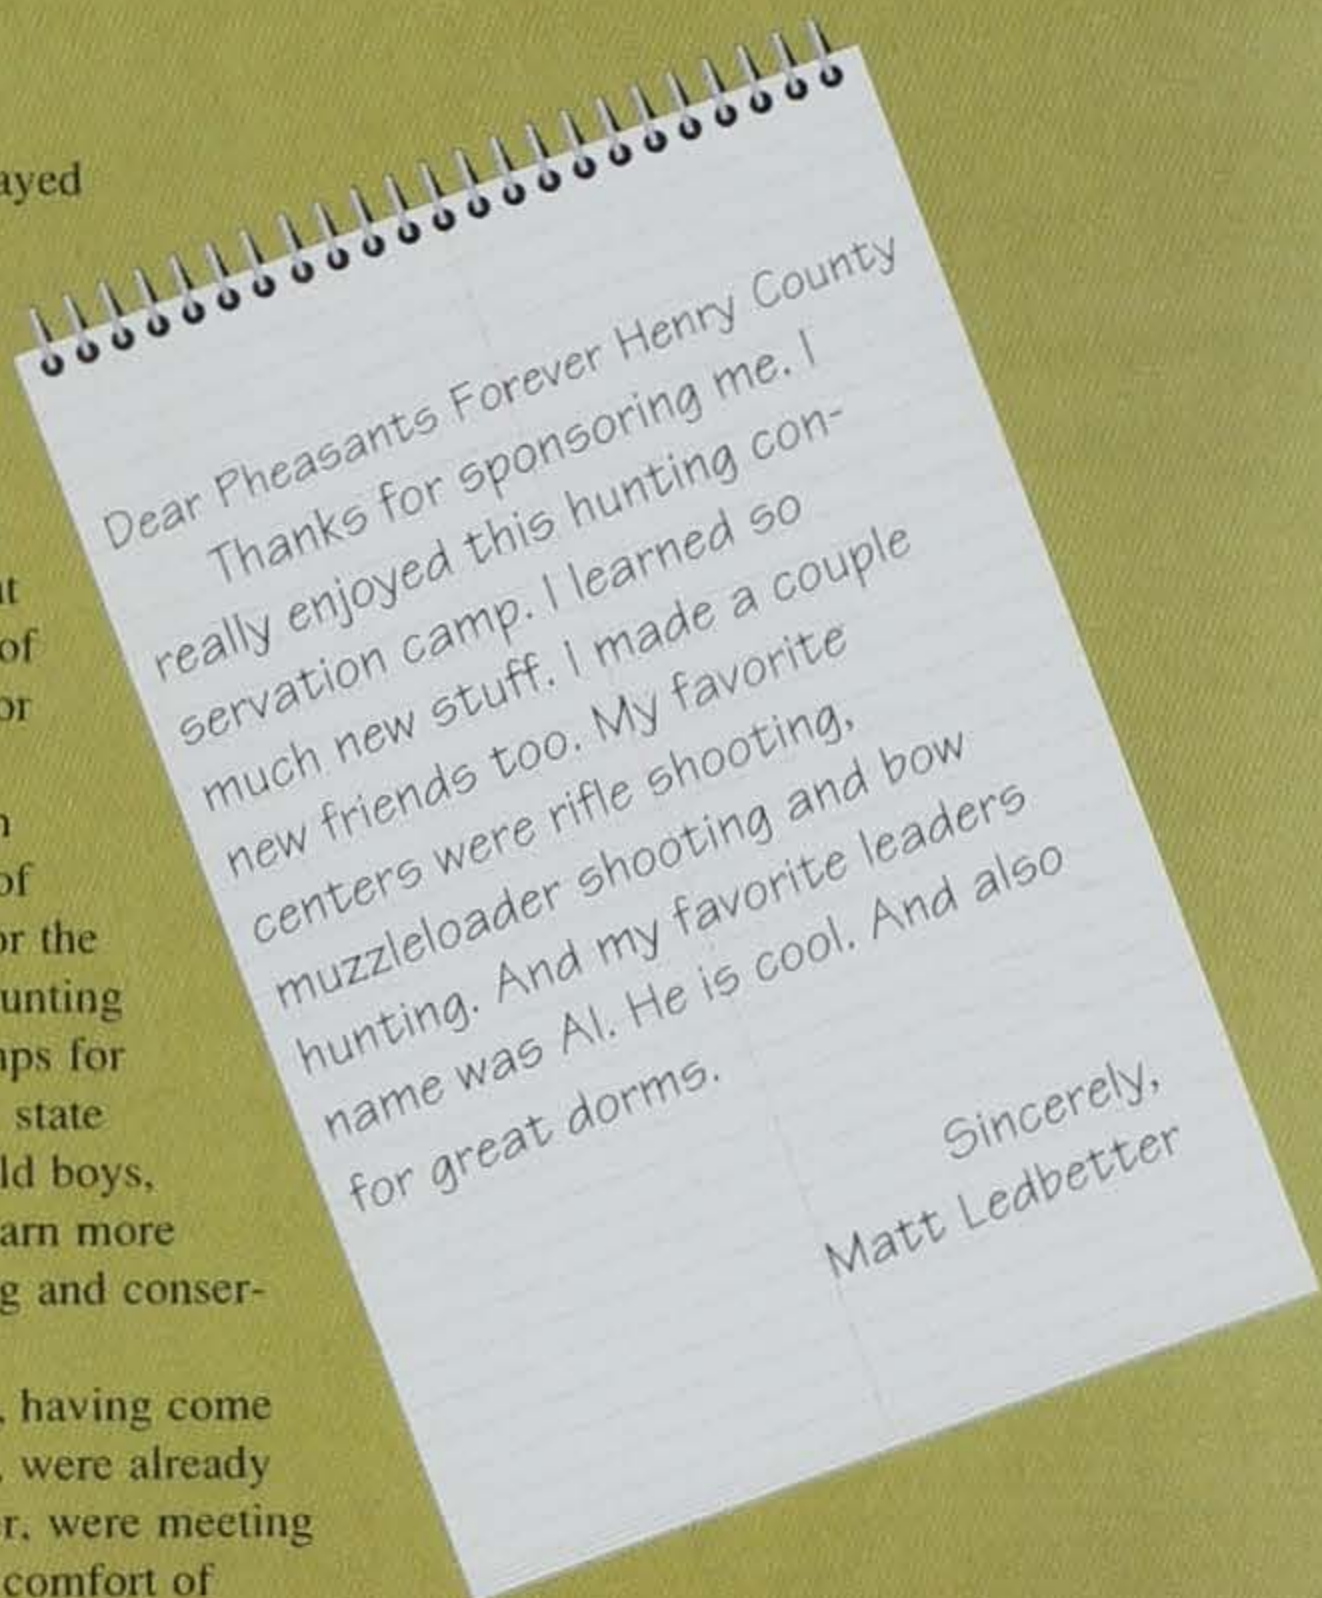 ayed
of
or
of
or the
unting
for
state
boys,
more
and conser-
, having come
, were already
were meeting
comfort of
Dear Pheasants Forever Henry County
Thanks for sponsoring me. I
really enjoyed this hunting con-
servation camp. I learned so
much new stuff. I made a couple
new friends too. My favorite
centers were rifle shooting,
muzzleloader shooting and bow
hunting. And my favorite leaders
name was Al. He is cool. And also
for great dorms.
Sincerely,
Matt Ledbetter